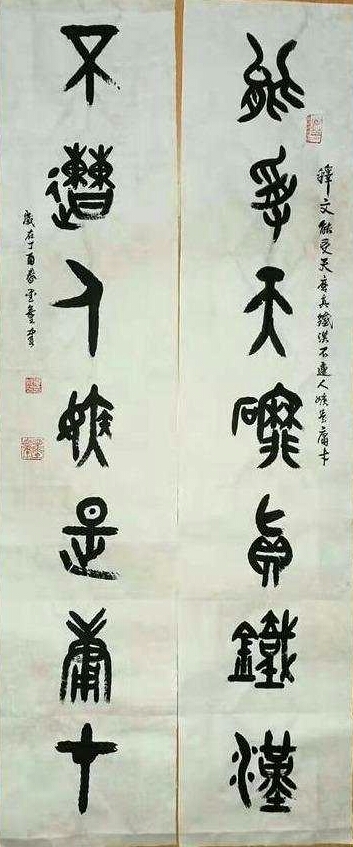 能受天磨真鐵漢
釋文能受天磨真鐵漢不遭人嫉是庸才
不遭人嫉是庸才
歲在丁酉春書